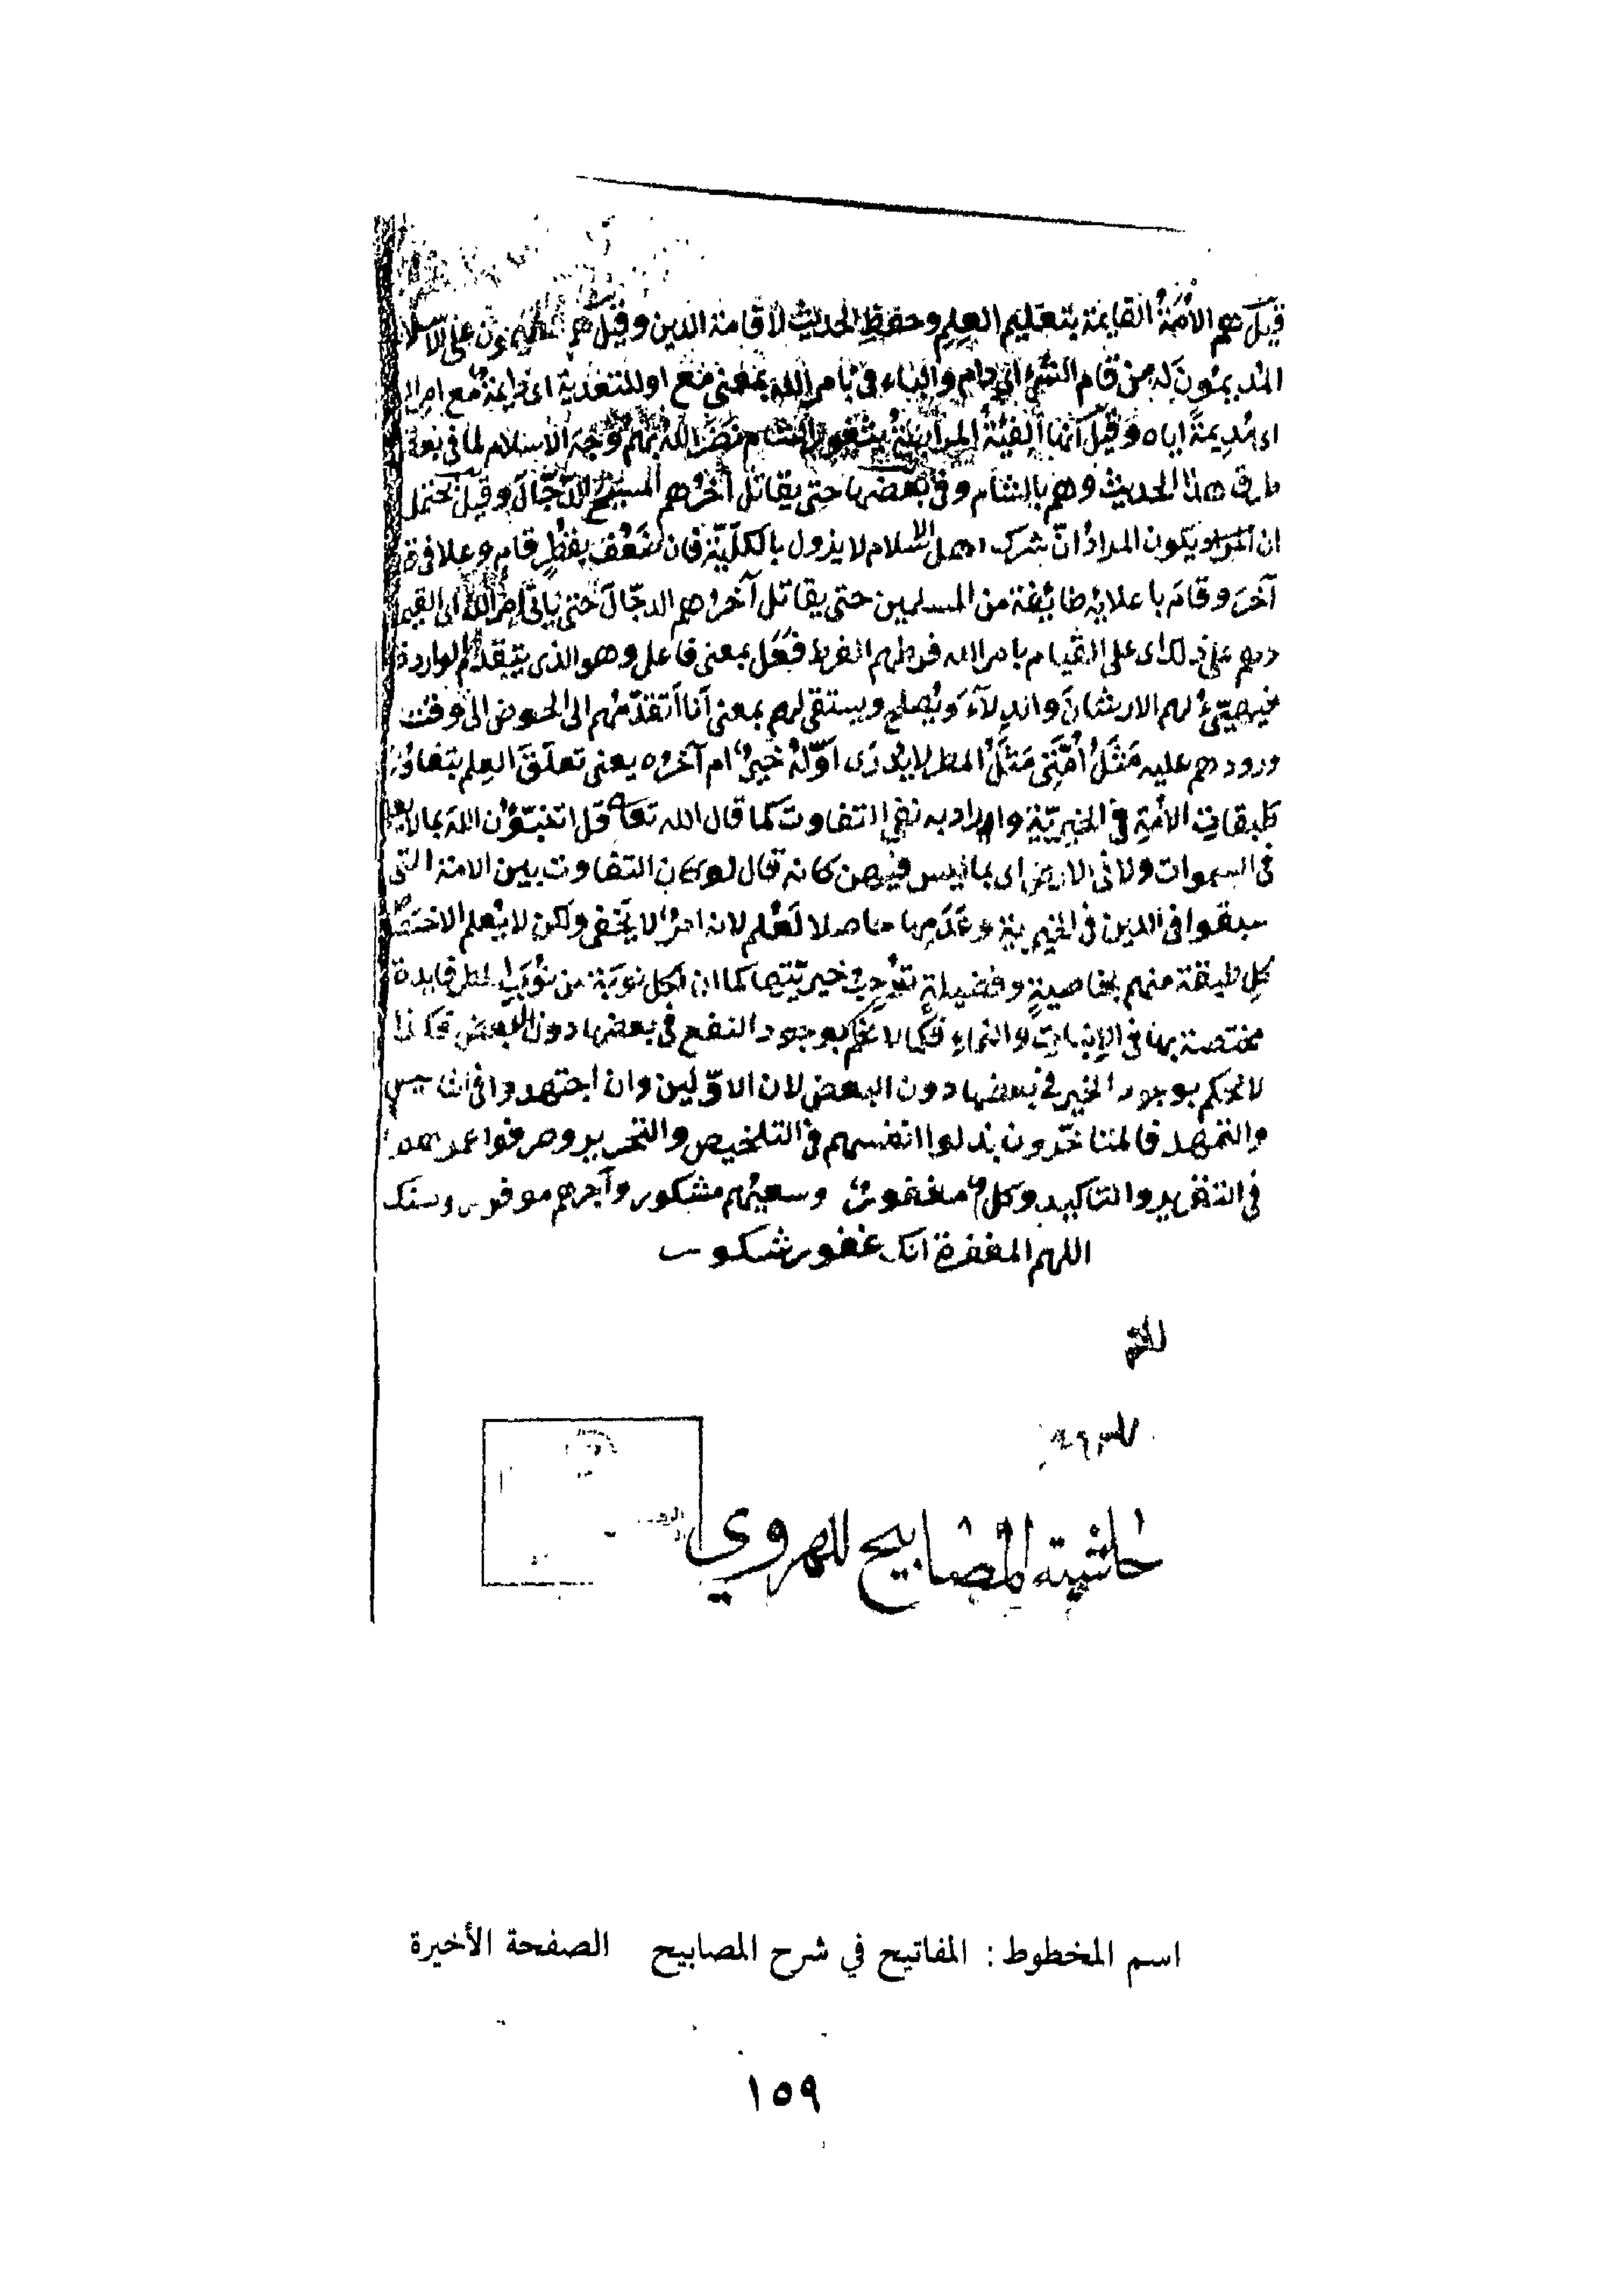 قيل هم الأمة القايمة بتعليم العلم وحفظ الحديث لاقامة الدين وقيل هم المقيمون على الاسلام
المديمون له من قام الشئ اى دام والباء فى بامر الله بمعنى مع او للتعدية اى دايمة مع امر الله
اى مديمة اياه وقيل انها الفئة المرابطة بثغور الشام نضر الله بهم وجه الاسلام لما فى بعض
طرق هذا الحديث وهم بالشام وفى بعضها حتى يقاتل آخرهم المسيح الدجال وقيل يحتمل
ان يكون المراد ان اهل الاسلام لا يزول بالكلية فان ضعف
آخر وقام باعلايه طايفة من المسلمين حتى يقاتل آخرهم الدجال حتى ياتى امر الله اى القيمة
وهم على ذلك اى على القيام بامر الله فرطهم الفرط فعل بمعنى فاعل وهو الذى يتقدم الواردة
فيهيئ لهم الارشان والدلاء ويصلح ويستقى لهم بمعنى انا اتقدمهم الى الحوض الى وقت
ورودهم عليه مثل أمتى مثل المطر لا يدرى اوله خير ام آخره يعنى تعلق العلم بتفاوت
طبقات الامة فى الخيرية واراد به نفى التفاوت كما قال الله تعا قل اتنبئون الله بما لا يعلم
فى السموات ولا فى الارض اى بما ليس فيهن كانه قال لو كان التفاوت بين الامة التى
سبقوا فى الدين فى الخيرية وعدمها حاصلا لعلم لانه امر لا يخفى ولكن لا يعلم الاختصاص
كل طبقة منهم بخاصية وفضيلة توجب خيريتها كما ان لكل نوبة من نوب المطر فايدة
مختصة بها فى الإنبات والنماء فكما لا نحكم بوجود النفع فى بعضها دون البعض فكذا
لا نحكم بوجود الخير فى بعضها دون البعض لان الاولين وان اجتهدوا فى التاسيس
والتمهد فالمتاخرون بذلوا انفسهم فى التلخيص والتحرير وصرفوا عمرهم
فى التقرير والتاكيد وكل مغفور وسعيهم مشكور وأجرهم موفور وسنك
اللهم المغفرة انك غفور شكور
حاشية المصابيح للهروي
اسم المخطوط : المفاتيح في شرح المصابيح الصفحة الأخيرة
١٥٩